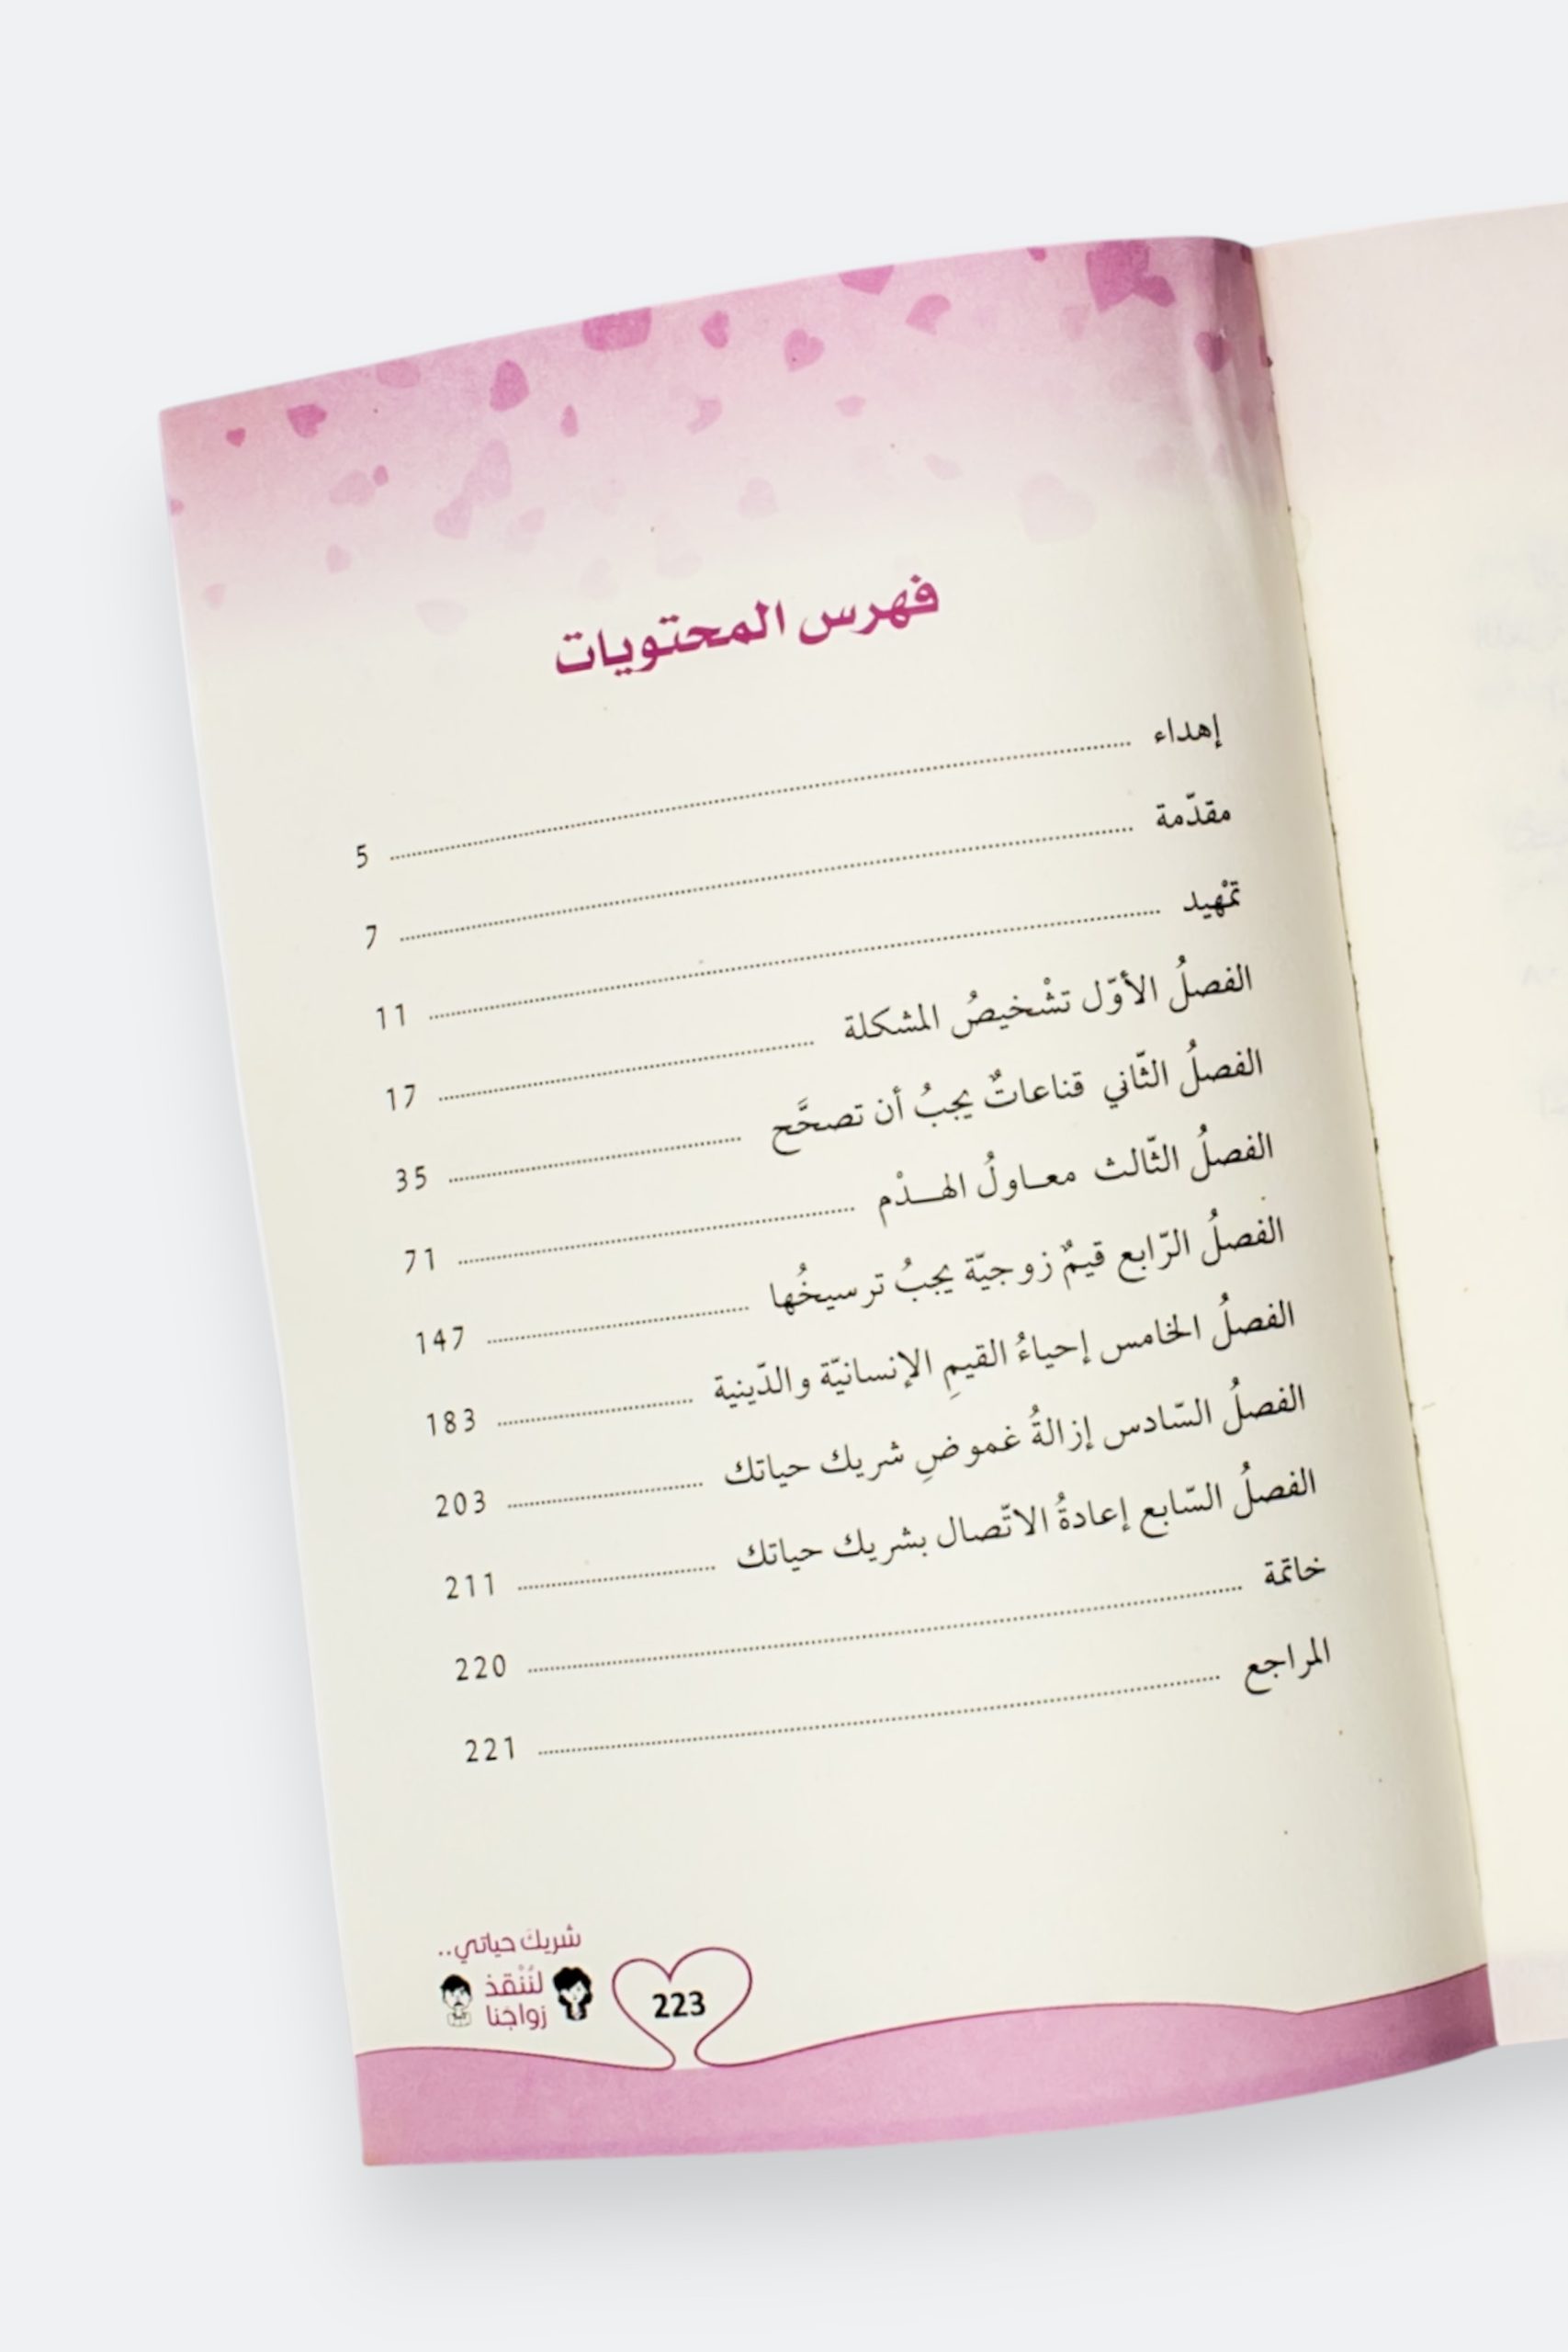 فهرس المحتويات
إهداء ........ 5
مقدّمة ........ 7
تمْهيد ........ 11
الفصلُ الأوّل تشْخيصُ المشكلة ........ 17
الفصلُ الثّاني قناعاتٌ يجبُ أن تصحَّح ........ 35
الفصلُ الثّالث معـاولُ الهـــدْم ........ 71
الفصلُ الرّابع قيمٌ زوجيّة يجبُ ترسيخُها ........ 147
الفصلُ الخامس إحياءُ القيمِ الإنسانيّة والدّينية ........ 183
الفصلُ السّادس إزالةُ غموضِ شريك حياتك ........ 203
الفصلُ السّابع إعادةُ الاتّصال بشريك حياتك ........ 211
خاتمة ........ 220
المراجع ........ 221
شريكَ حياتي..
لنُنْقذ
زواجَنا
223